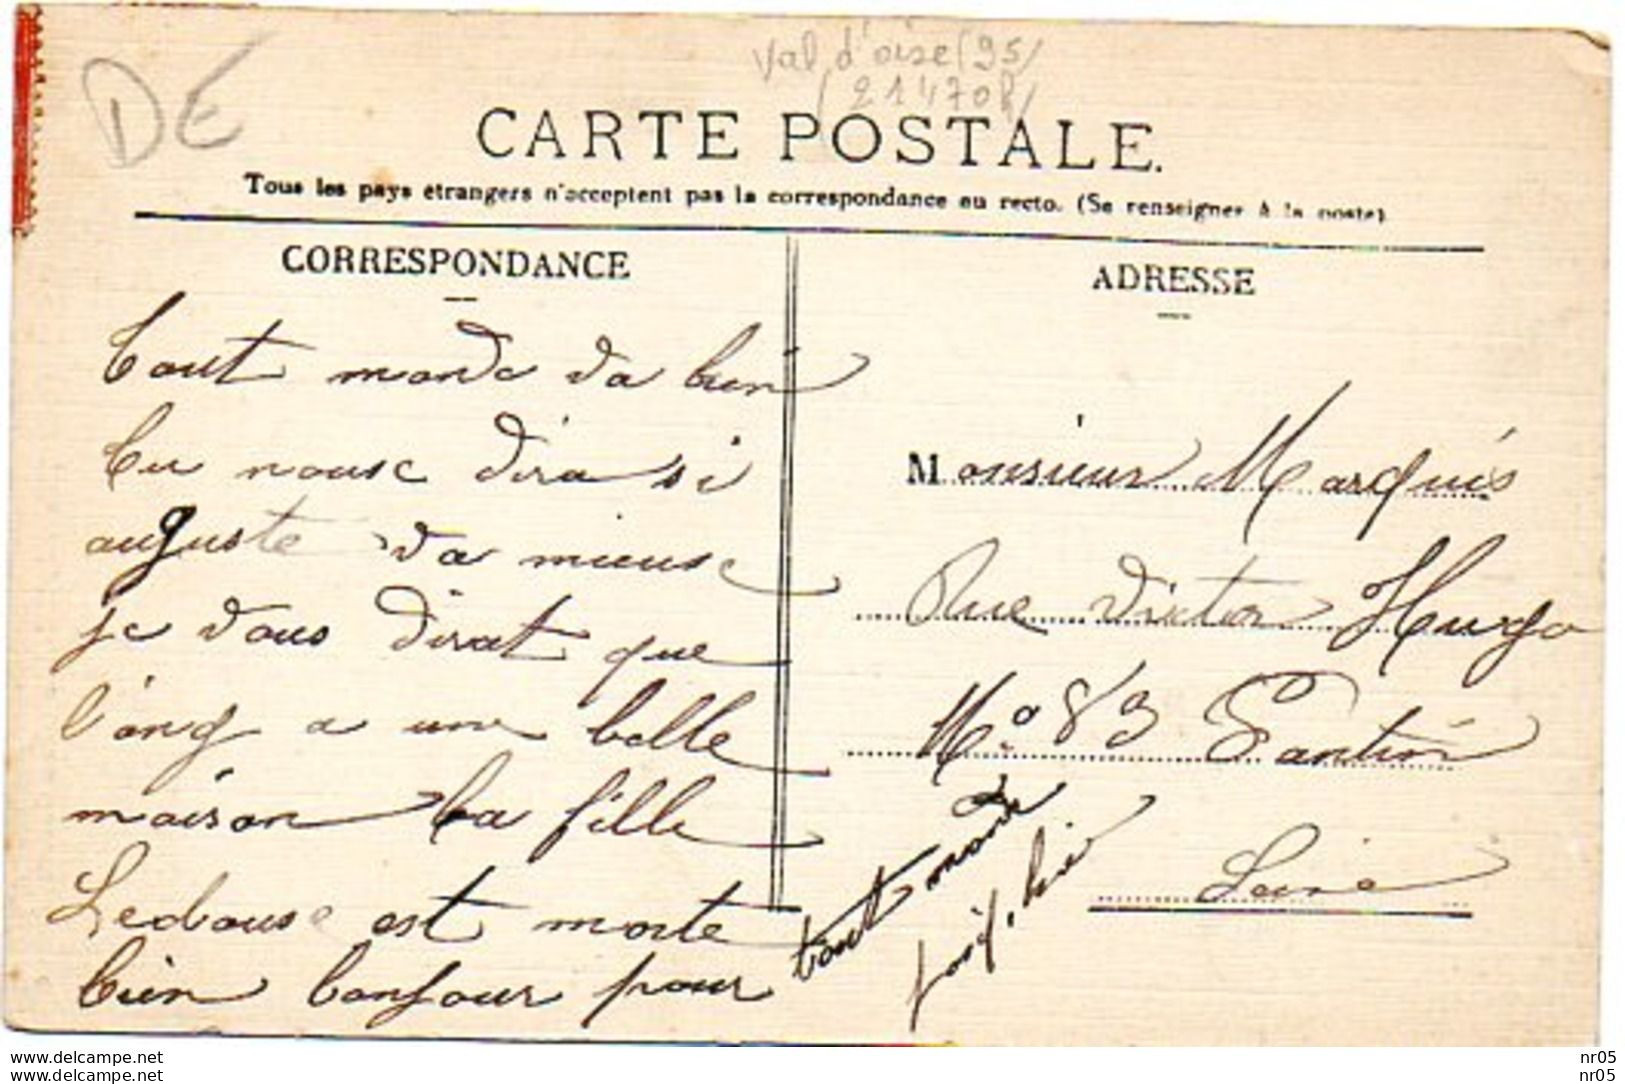 DE
Val d'oise (95)
CARTE POSTALE.
Tous les pays étrangers n'acceptent pas la correspondance au recto. (Se renseigner à la poste)
CORRESPONDANCE
tout monde va bien
tu nousc dira si
auguste va mieuse
je vous dirat que
l'ang a une belle
maison la fille
Ledouse est morte
bien bonjour pour
tout monde
ADRESSE
Monsieur Marquis
Rue Victor Hugo
No 83 Pantin
Seine
www.delcampe.net
www.delcampe.net
nr05
nr05